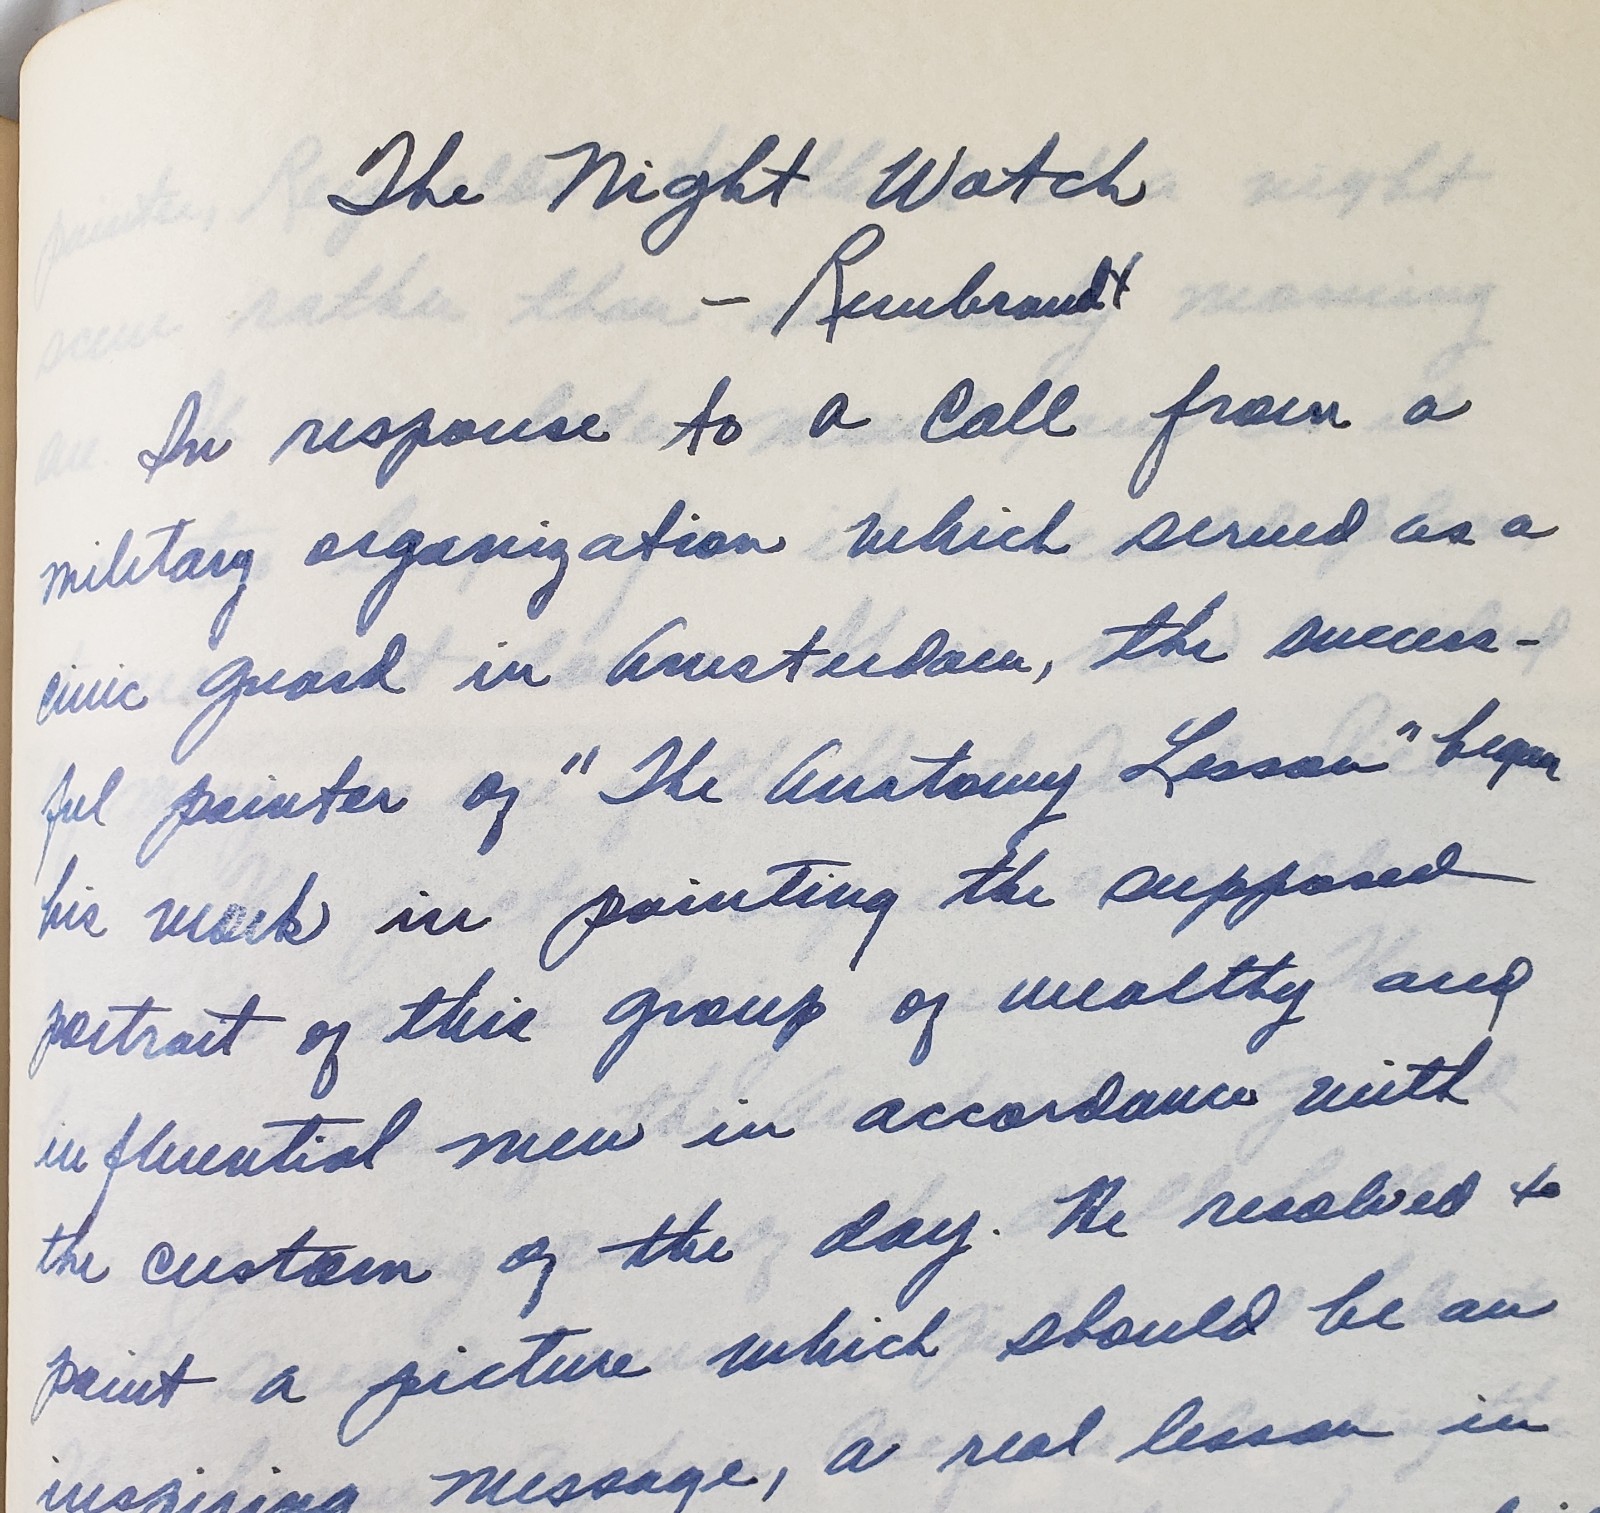 The Night Watch
- Rembrandt
In response to a call from a
military organization which served as a
civic guard in Amsterdam, the success-
ful painter of "The Anatomy Lesson" began
his work in painting the supposed
portrait of this group of wealthy and
influential men in accordance with
the custom of the day. He resolved to
paint a picture which should be an
inspiring message, a real lesson in